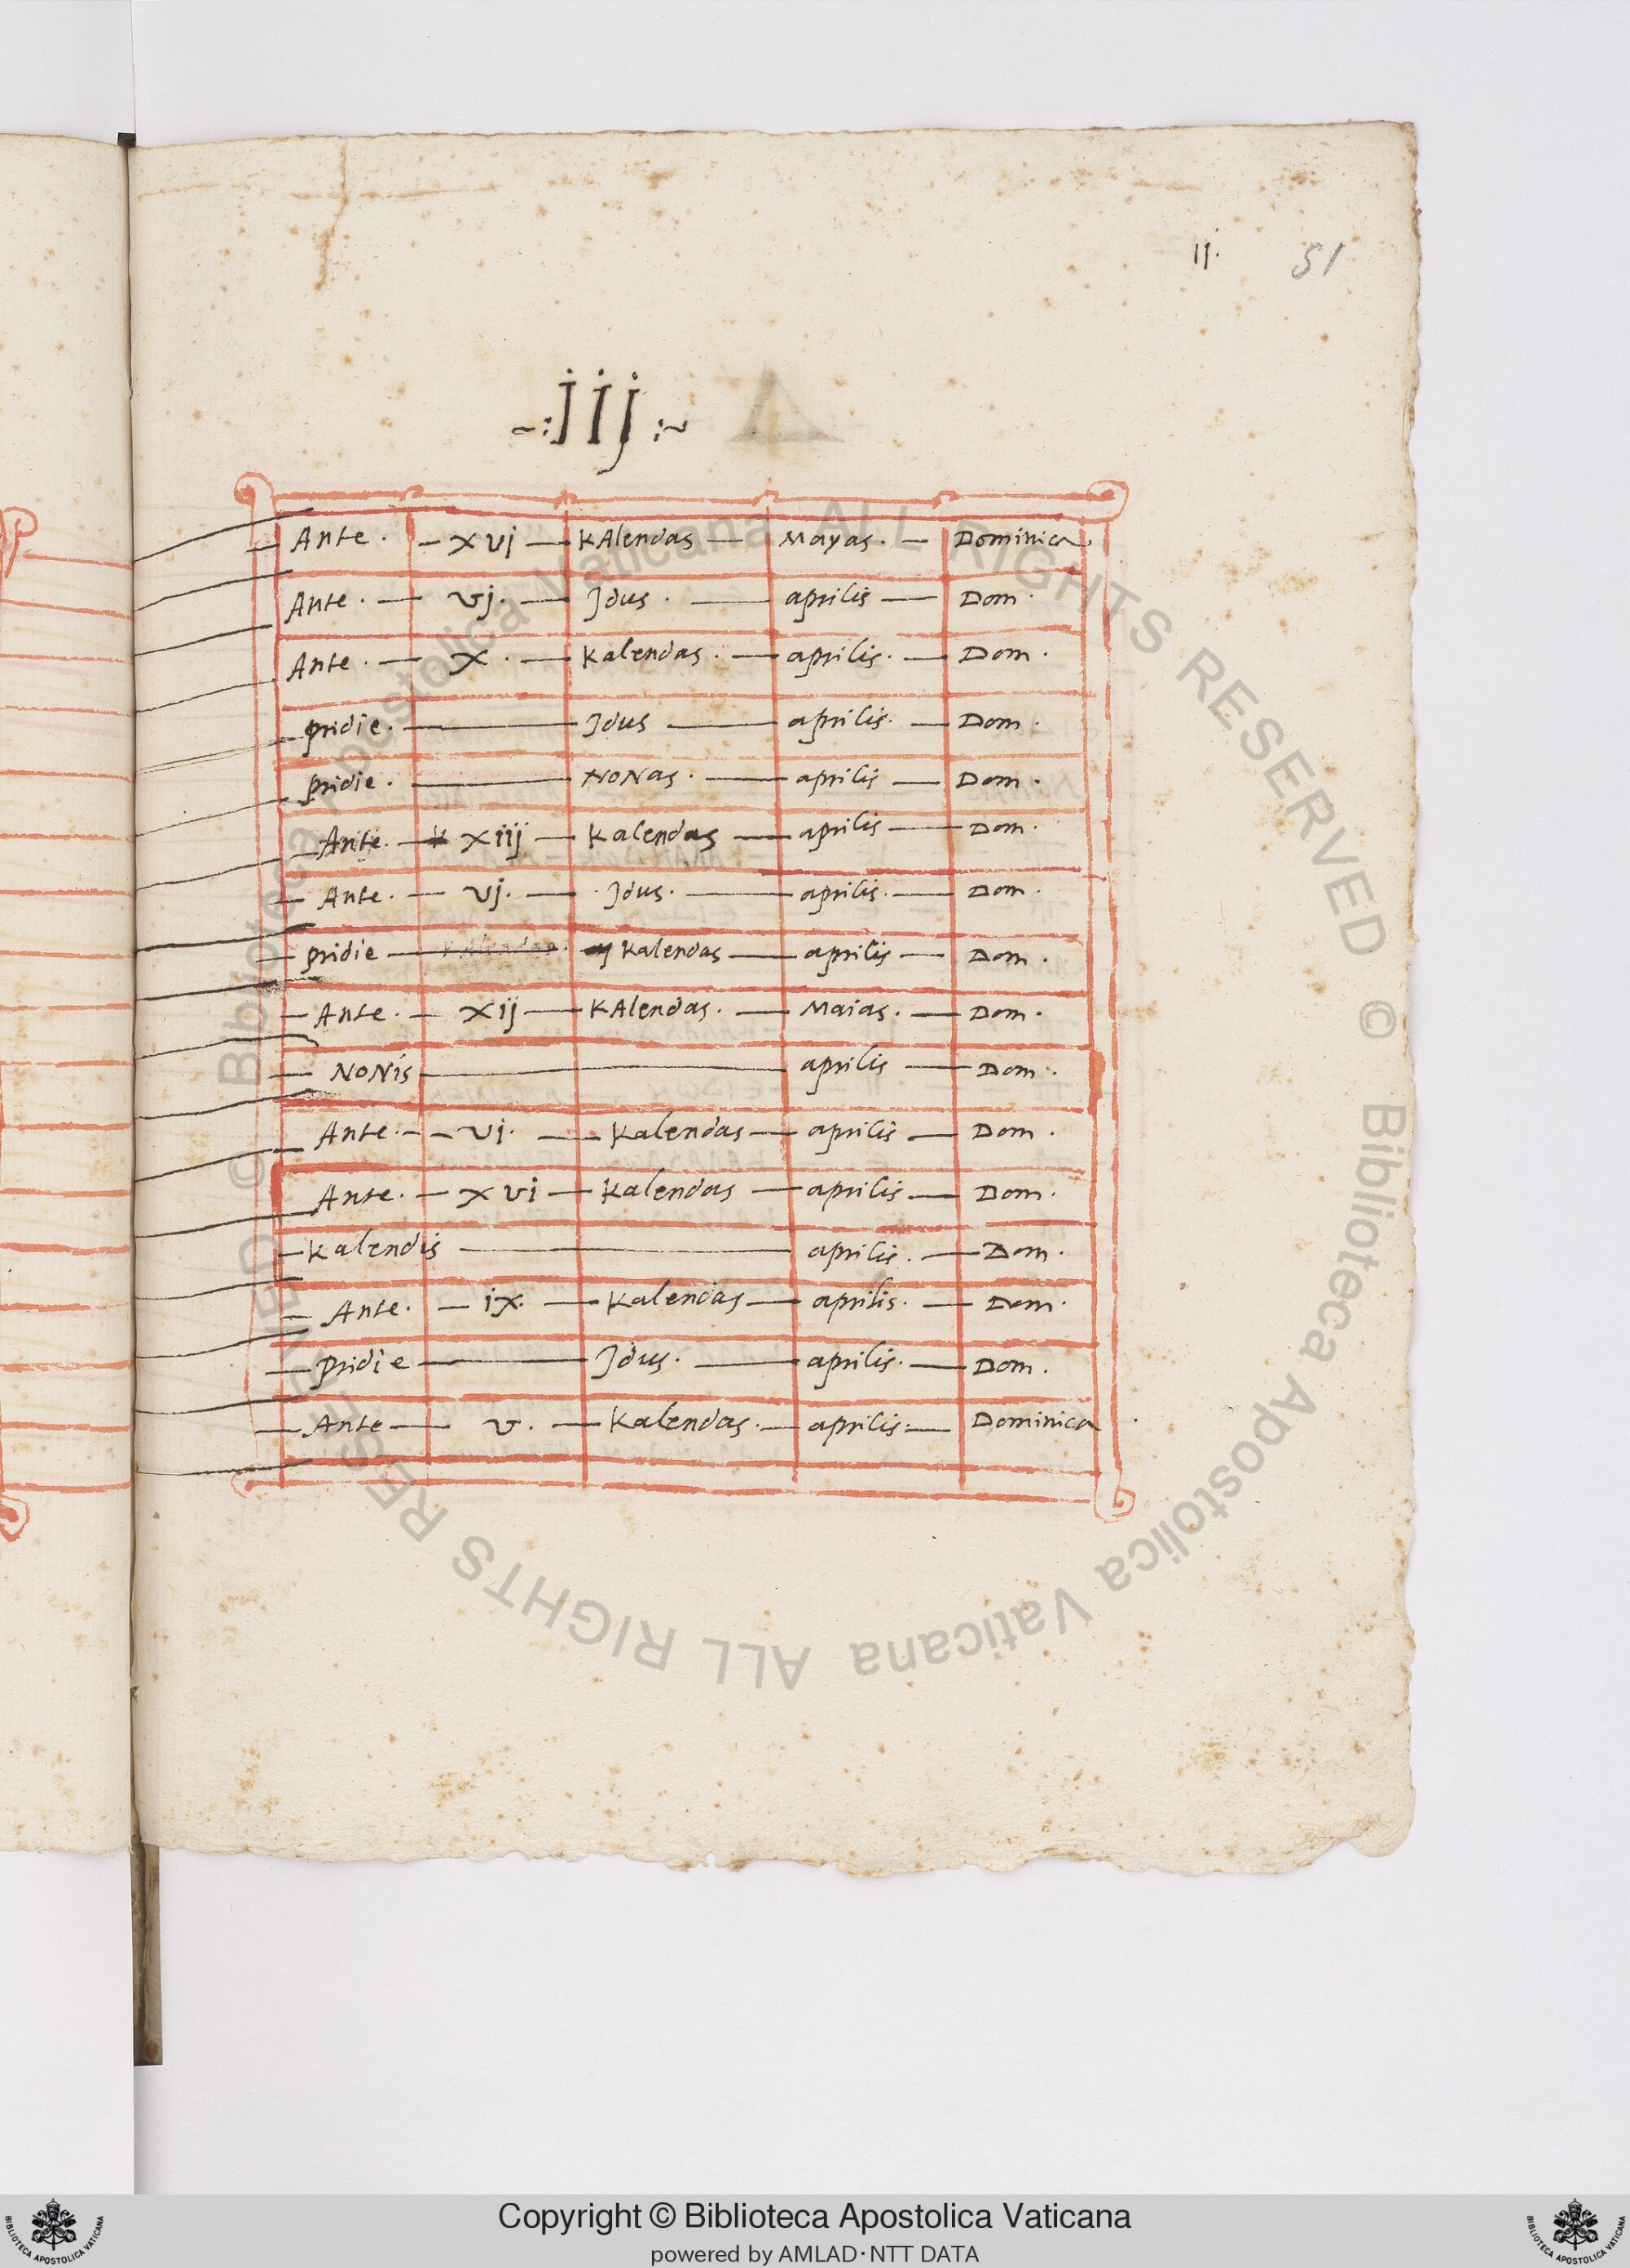 ij. 51
~:jij:~
Ante. – xvj – KAlendas – Mayas. – Dominica
Ante. – vj. – Jdus. – aprilis – Dom.
Ante. – x. – Kalendas. – aprilis. – Dom.
pridie. – Jdus – aprilis. – Dom.
pridie. – NoNas. – aprilis – Dom.
Ante. – xiij – Kalendas – aprilis – Dom.
Ante. – vj. – Jdus. – aprilis. – Dom.
pridie – Kalendas – aprilis – Dom.
Ante. – xij – KAlendas. – Maias. – Dom.
NoNis – aprilis – Dom.
Ante. – vi. – Kalendas – aprilis – Dom.
Ante. – xvi – Kalendas – aprilis – Dom.
Kalendis – aprilis. – Dom.
Ante. – ix. – Kalendas – aprilis. – Dom.
pridie – Jdus. – aprilis. – Dom.
Ante – v. – Kalendas. – aprilis. – Dominica
© Biblioteca Apostolica Vaticana ALL RIGHTS RESERVED © Biblioteca Apostolica Vaticana ALL RIGHTS RESERVED
Copyright © Biblioteca Apostolica Vaticana
powered by AMLAD·NTT DATA
BIBLIOTECA APOSTOLICA VATICANA
BIBLIOTECA APOSTOLICA VATICANA